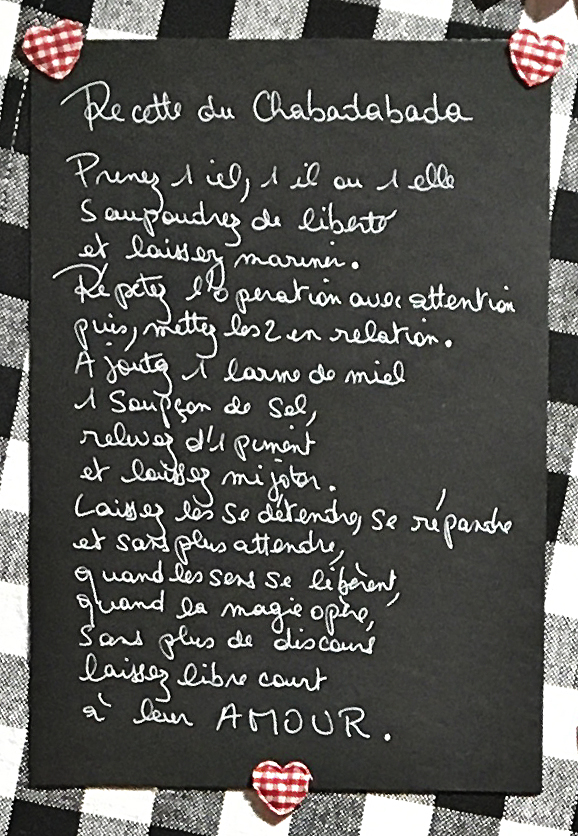 Recette du Chabadabada
Prenez 1 iel, 1 il ou 1 elle
Saupoudrez de liberté
et laissez mariner.
Répétez l'opération avec attention
puis, mettez les 2 en relation.
Ajoutez 1 larme de miel
1 Soupçon de Sel,
relevez d'1 piment
et laissez mijoter.
Laissez les se détendre, se répandre
et sans plus attendre,
quand les sens se libèrent,
quand la magie opère,
Sans plus de discours
laissez libre court
à leur AMOUR.